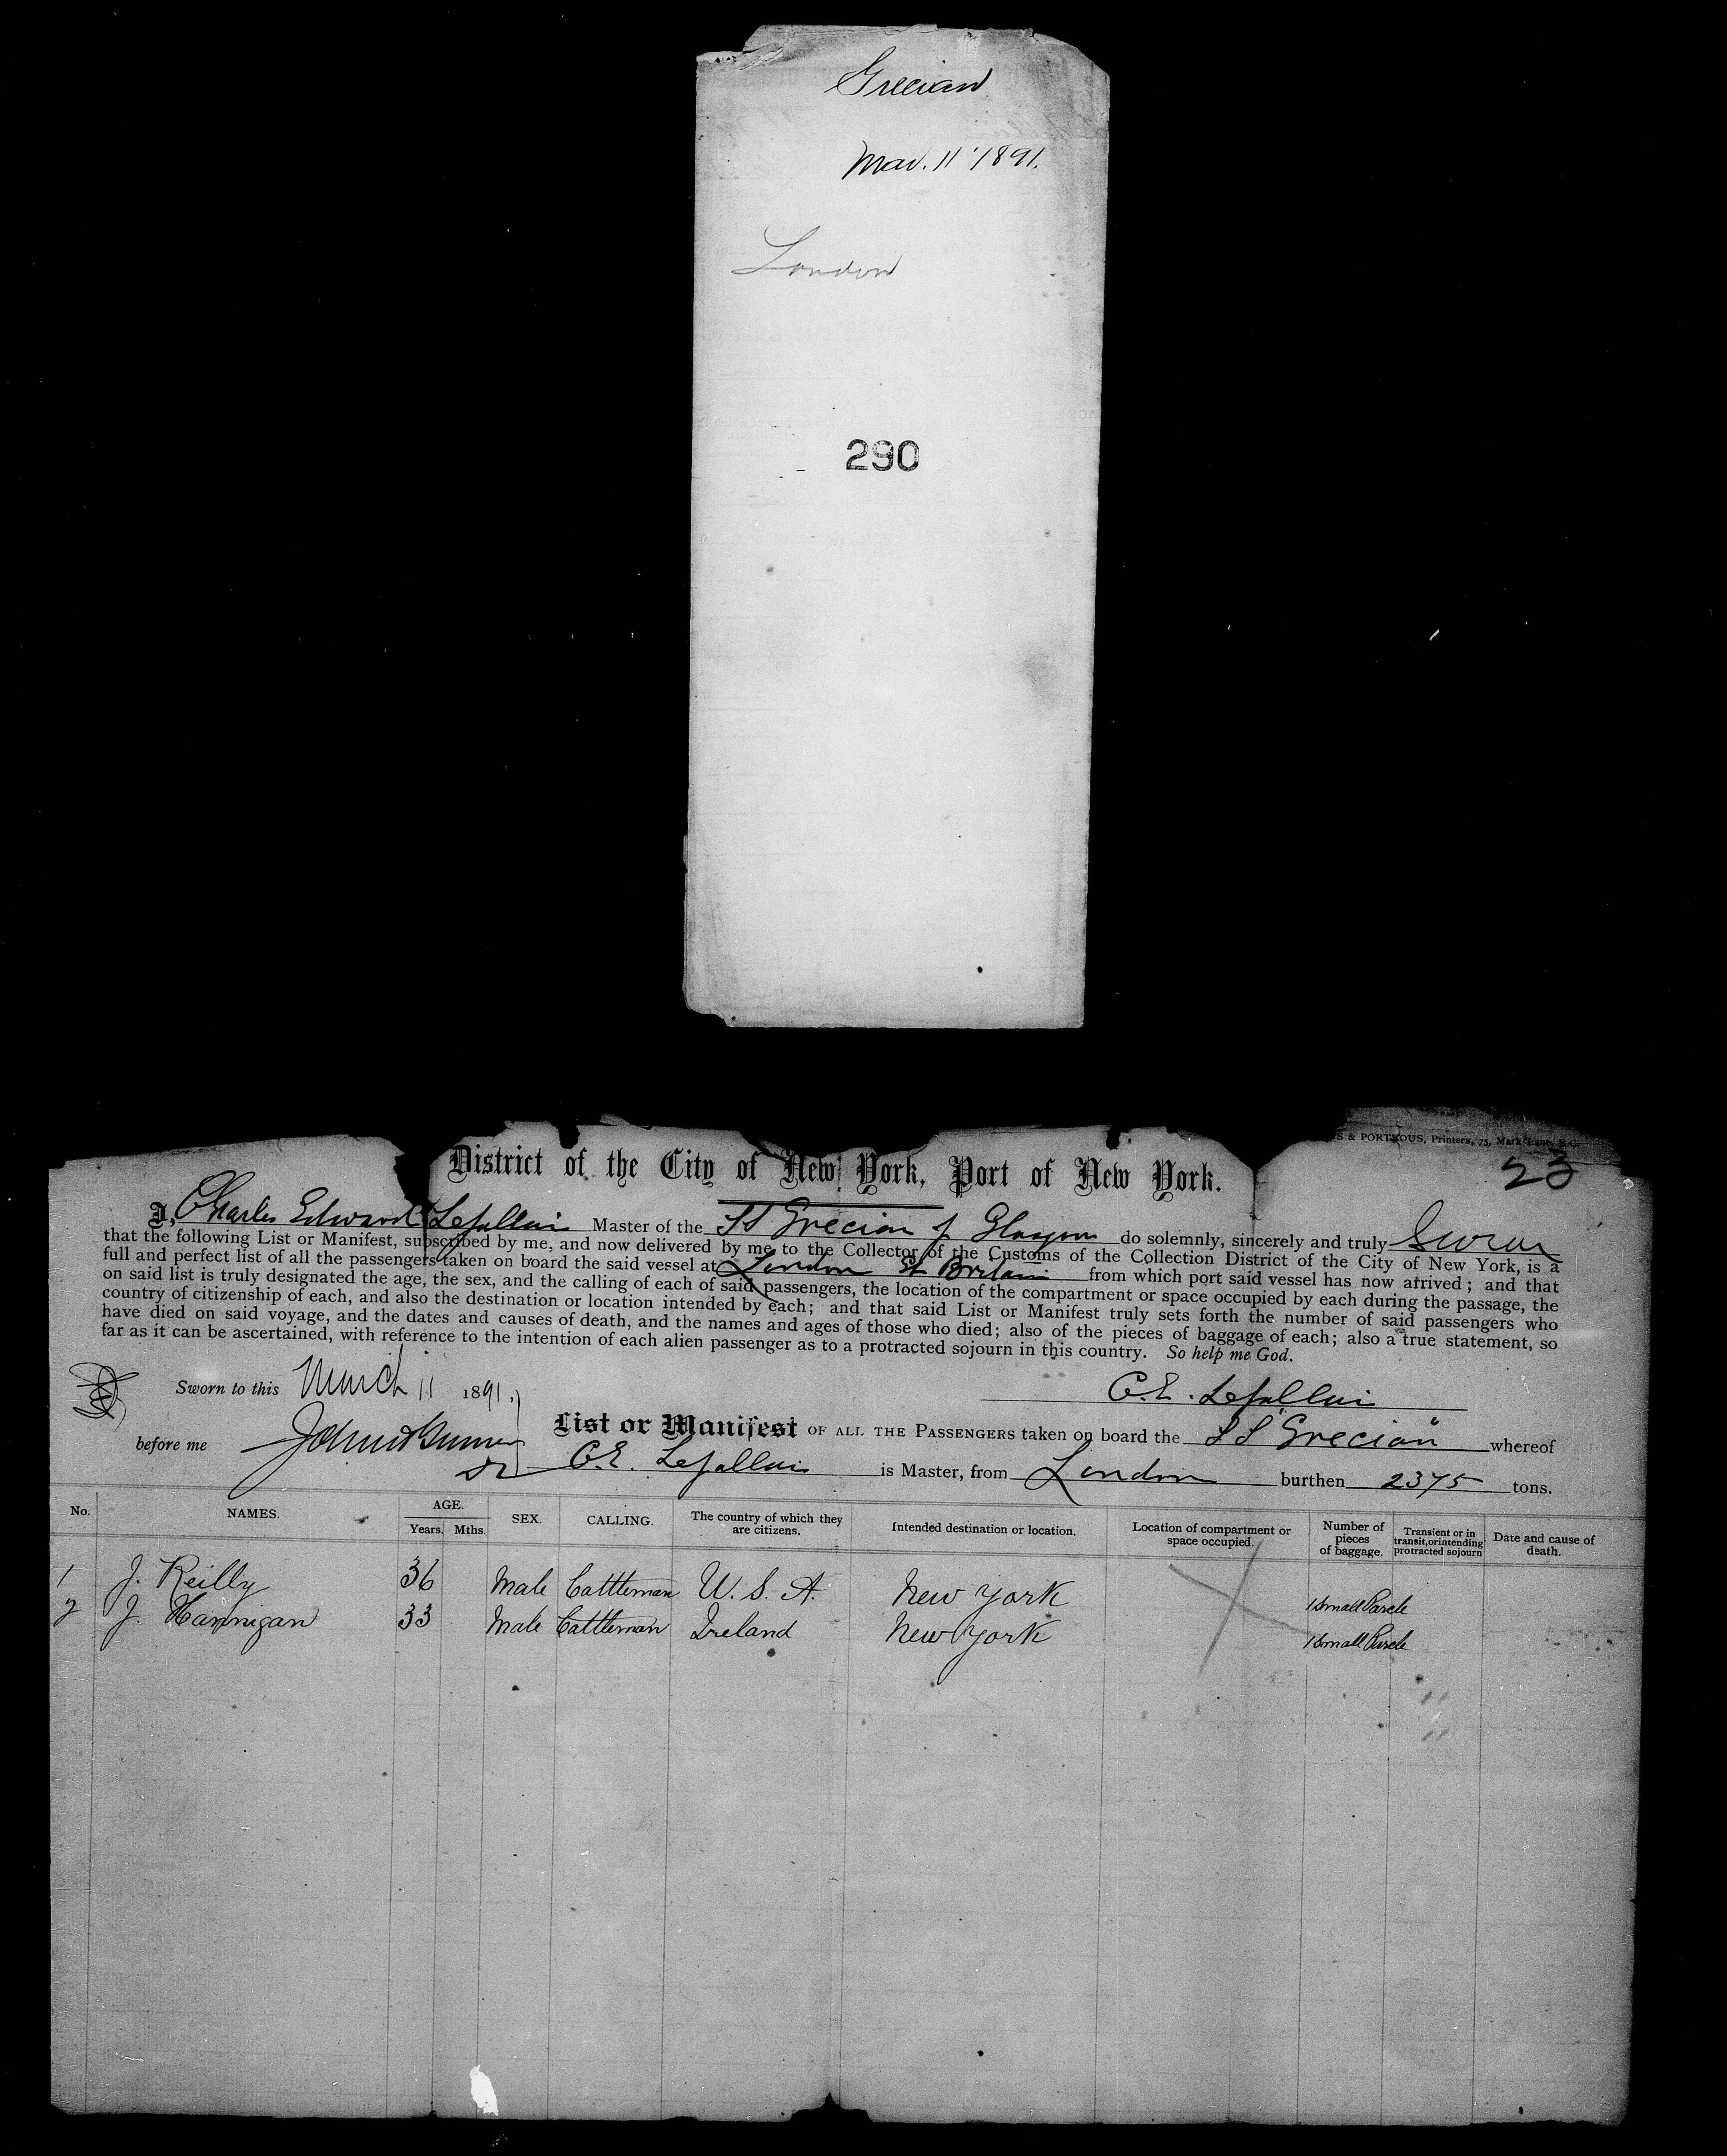 Grecian
Mar. 11 '1891.
London
290
S & PORTEOUS, Printers, 75, Mark Lane, E.C.
23
District of the City of New York, Port of New York.
I, Charles Edward Master of the SS Grecian of Glasgow do solemnly, sincerely and truly Swear
that the following List or Manifest, subscribed by me, and now delivered by me to the Collector of the Customs of the Collection District of the City of New York, is a
full and perfect list of all the passengers taken on board the said vessel at London Gt Britain from which port said vessel has now arrived; and that
on said list is truly designated the age, the sex, and the calling of each of said passengers, the location of the compartment or space occupied by each during the passage, the
country of citizenship of each, and also the destination or location intended by each; and that said List or Manifest truly sets forth the number of said passengers who
have died on said voyage, and the dates and causes of death, and the names and ages of those who died; also of the pieces of baggage of each; also a true statement, so
far as it can be ascertained, with reference to the intention of each alien passenger as to a protracted sojourn in this country. So help me God.
Sworn to this March 11 1891.
C.E.
before me
List or Manifest OF ALL THE PASSENGERS taken on board the SS Grecian" whereof
C.E. is Master, from London burthen 2375 tons.
No. NAMES. AGE. Years. Mths. SEX. CALLING. The country of which they are citizens. Intended destination or location. Location of compartment or space occupied. Number of pieces of baggage. Transient or in transit, or intending protracted sojourn Date and cause of death.
1 J. Reilly 36 Male Cattleman U.S.A. New York 1 Small Parcle
2 J. Hannigan 33 Male Cattleman Ireland New York 1 Small Parcle